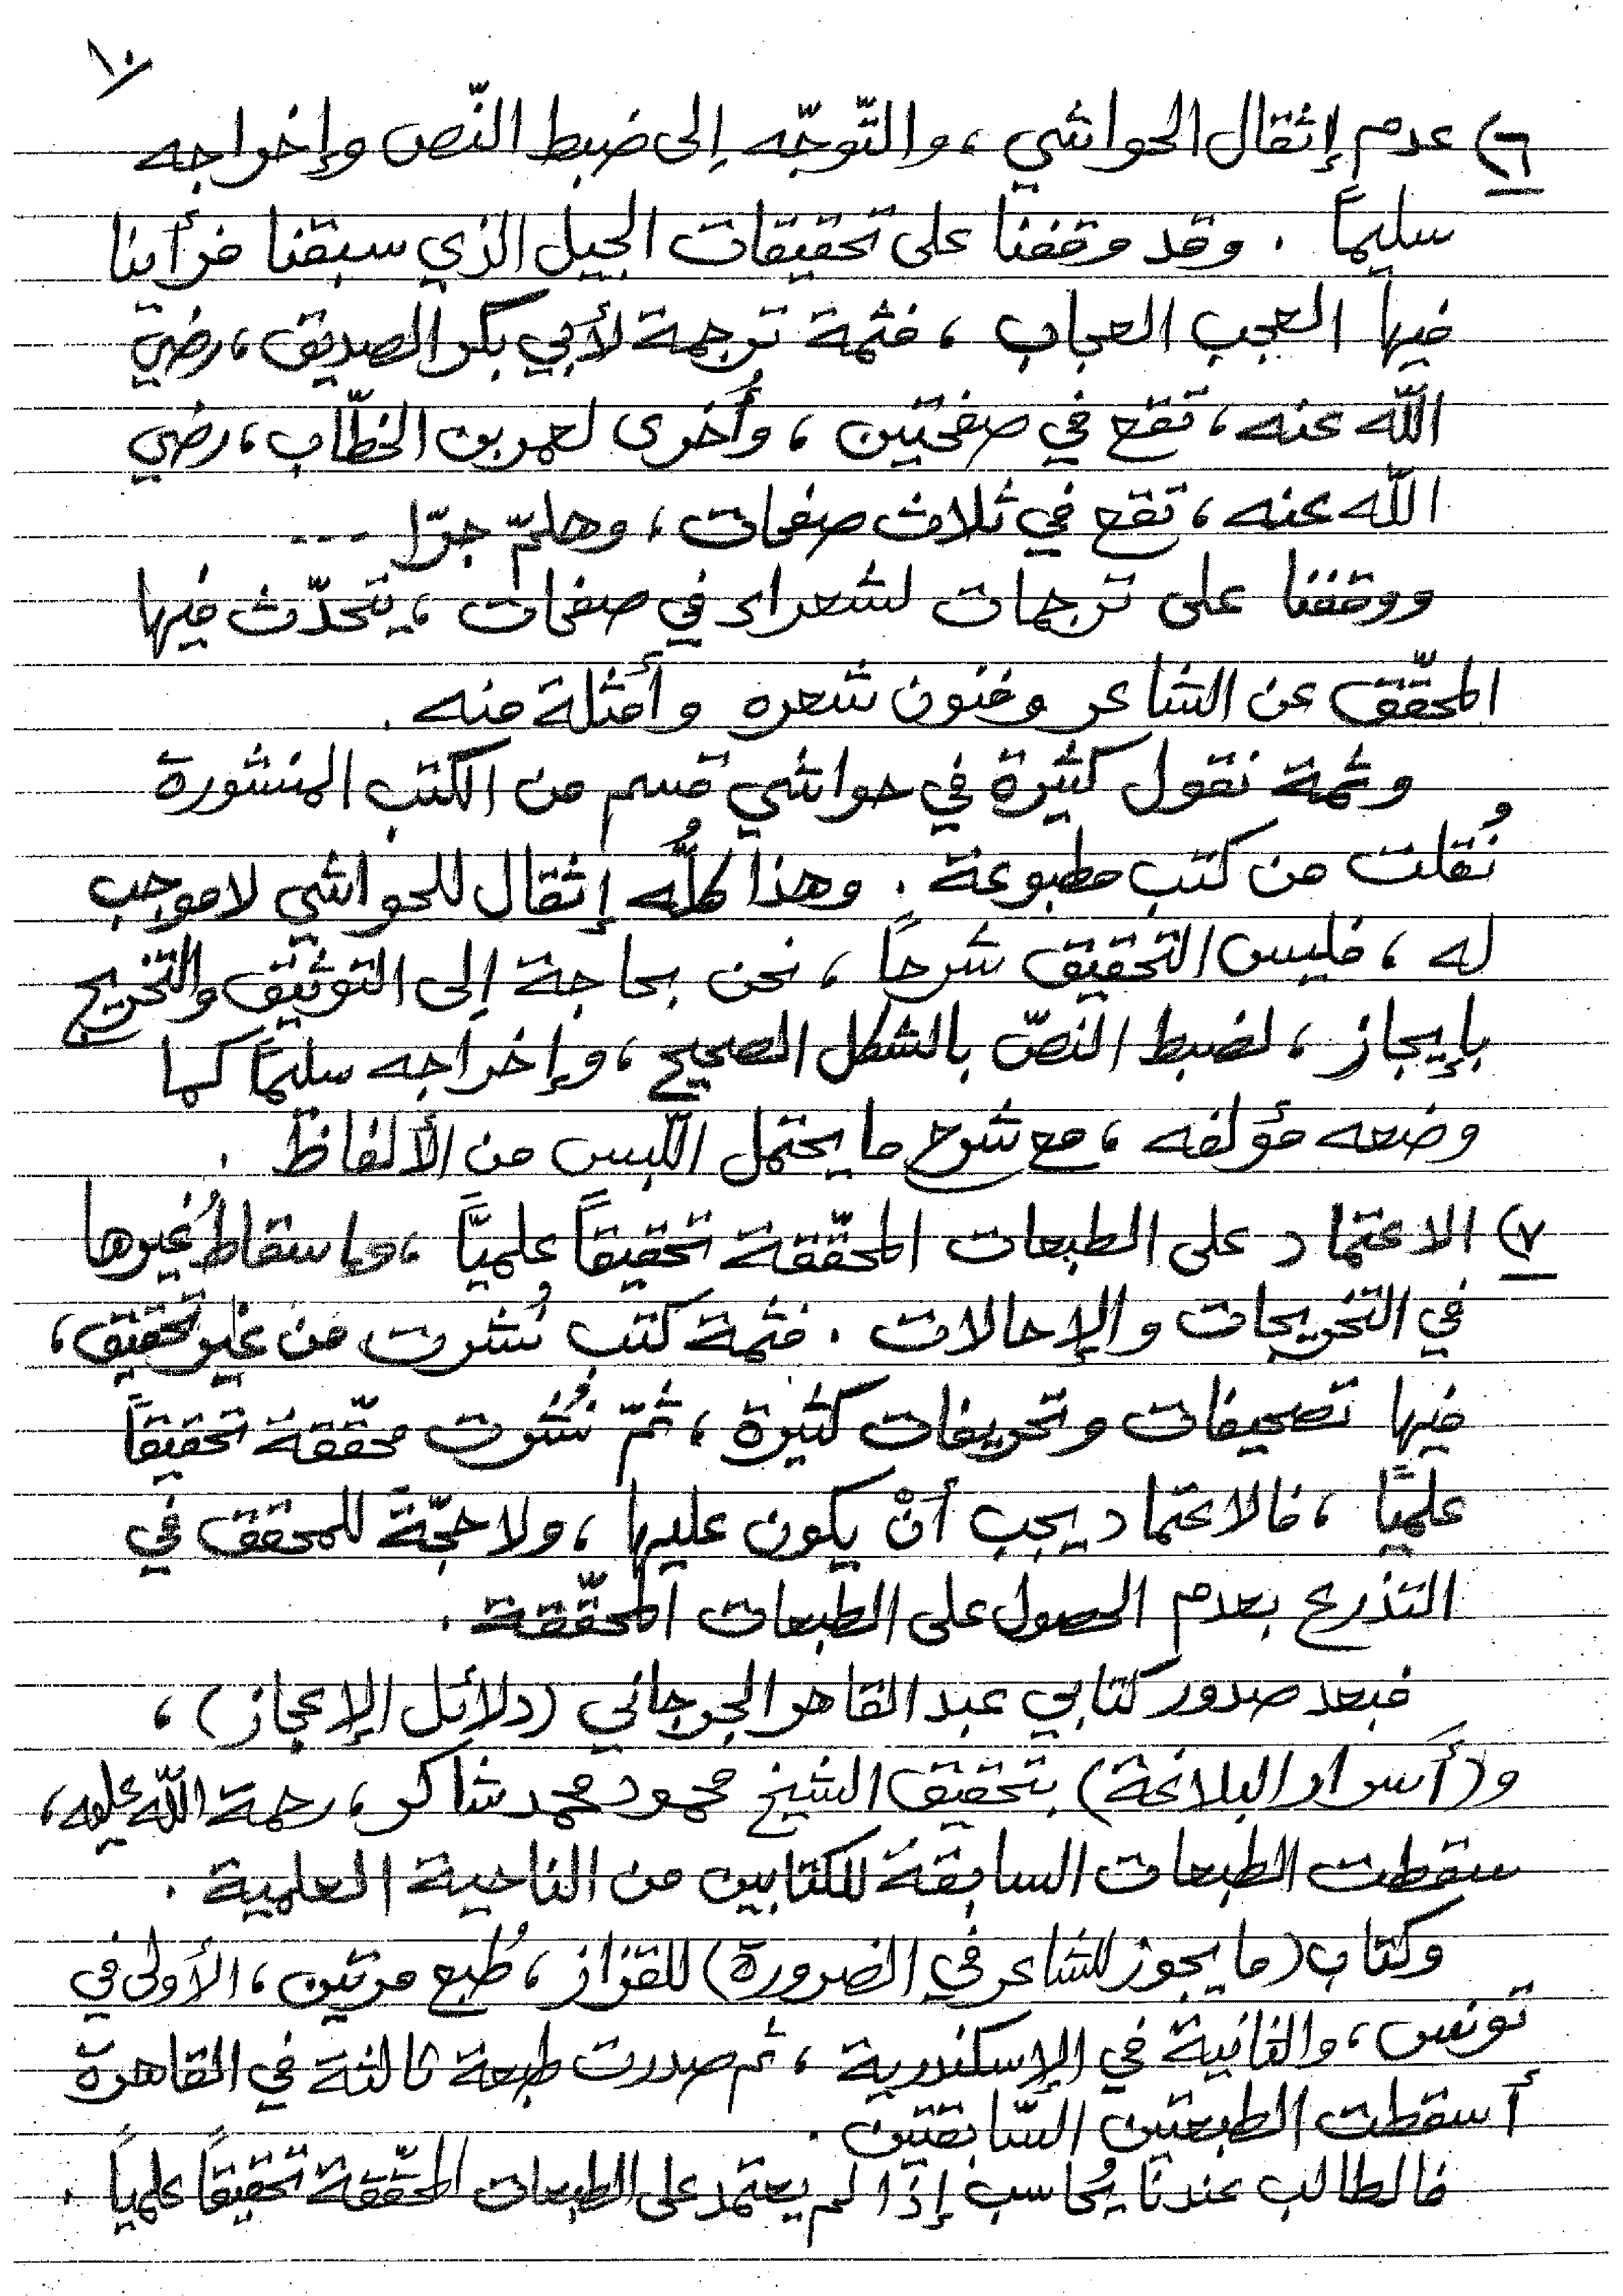 ١٠
٦) عدم إثقال الحواشي ، والتّوجّه إلى ضبط النّص وإخراجه
سليماً . وقد وقفنا على تحقيقات الجيل الذي سبقنا فرأينا
فيها العجب العجاب ، فثمة ترجمة لأبي بكر الصديق ، رضي
اللّه عنه ، تقع في صفحتين ، وأُخرى لعمر بن الخطّاب ، رضي
اللّه عنه ، تقع في ثلاث صفحات ، وهلمّ جرّا ...
ووقفنا على ترجمات لشعراء في صفحات ، يتحدّث فيها
المحقّق عن الشاعر وفنون شعره وأمثلة منه .
وثمة نقول كثيرة في حواشي قسم من الكتب المنشورة
نُقلت من كتب مطبوعة . وهذا كلُّه إثقال للحواشي لا موجب
له ، فليس التحقيق شرحاً ، نحن بحاجة إلى التوثيق والتخريج
بإيجاز ، لضبط النصّ بالشكل الصحيح ، وإخراجه سليماً كما
وضعه مؤلفه ، مع شرح ما يحتمل اللّبس من الألفاظ .
٧) الاعتماد على الطبعات المحقّقة تحقيقاً علميّاً ، وإسقاط غيرها
في التخريجات والإحالات . فثمة كتب نُشرت من غير تحقيق ،
فيها تصحيفات وتحريفات كثيرة ، ثمّ نُشرت محقّقة تحقيقاً
علميّاً ، فالاعتماد يجب أنْ يكون عليها ، ولا حجّة للمحقق في
التذرع بعدم الحصول على الطبعات المحقّقة .
فبعد صدور كتابي عبد القاهر الجرجاني (دلائل الإعجاز) ،
و(أسرار البلاغة) بتحقيق الشيخ محمود محمد شاكر ، رحمة اللّه عليه ،
سقطت الطبعات السابقة للكتابين من الناحية العلمية .
وكتاب (ما يجوز للشاعر في الضرورة) للقزاز ، طُبع مرتين ، الأولى في
تونس ، والثانية في الإسكندرية ، ثم صدرت طبعة ثالثة في القاهرة
أسقطت الطبعتين السّابقتين .
فالطالب عندنا يُحاسب إذا لم يعتمد على الطبعات المحقّقة تحقيقاً علمياً .